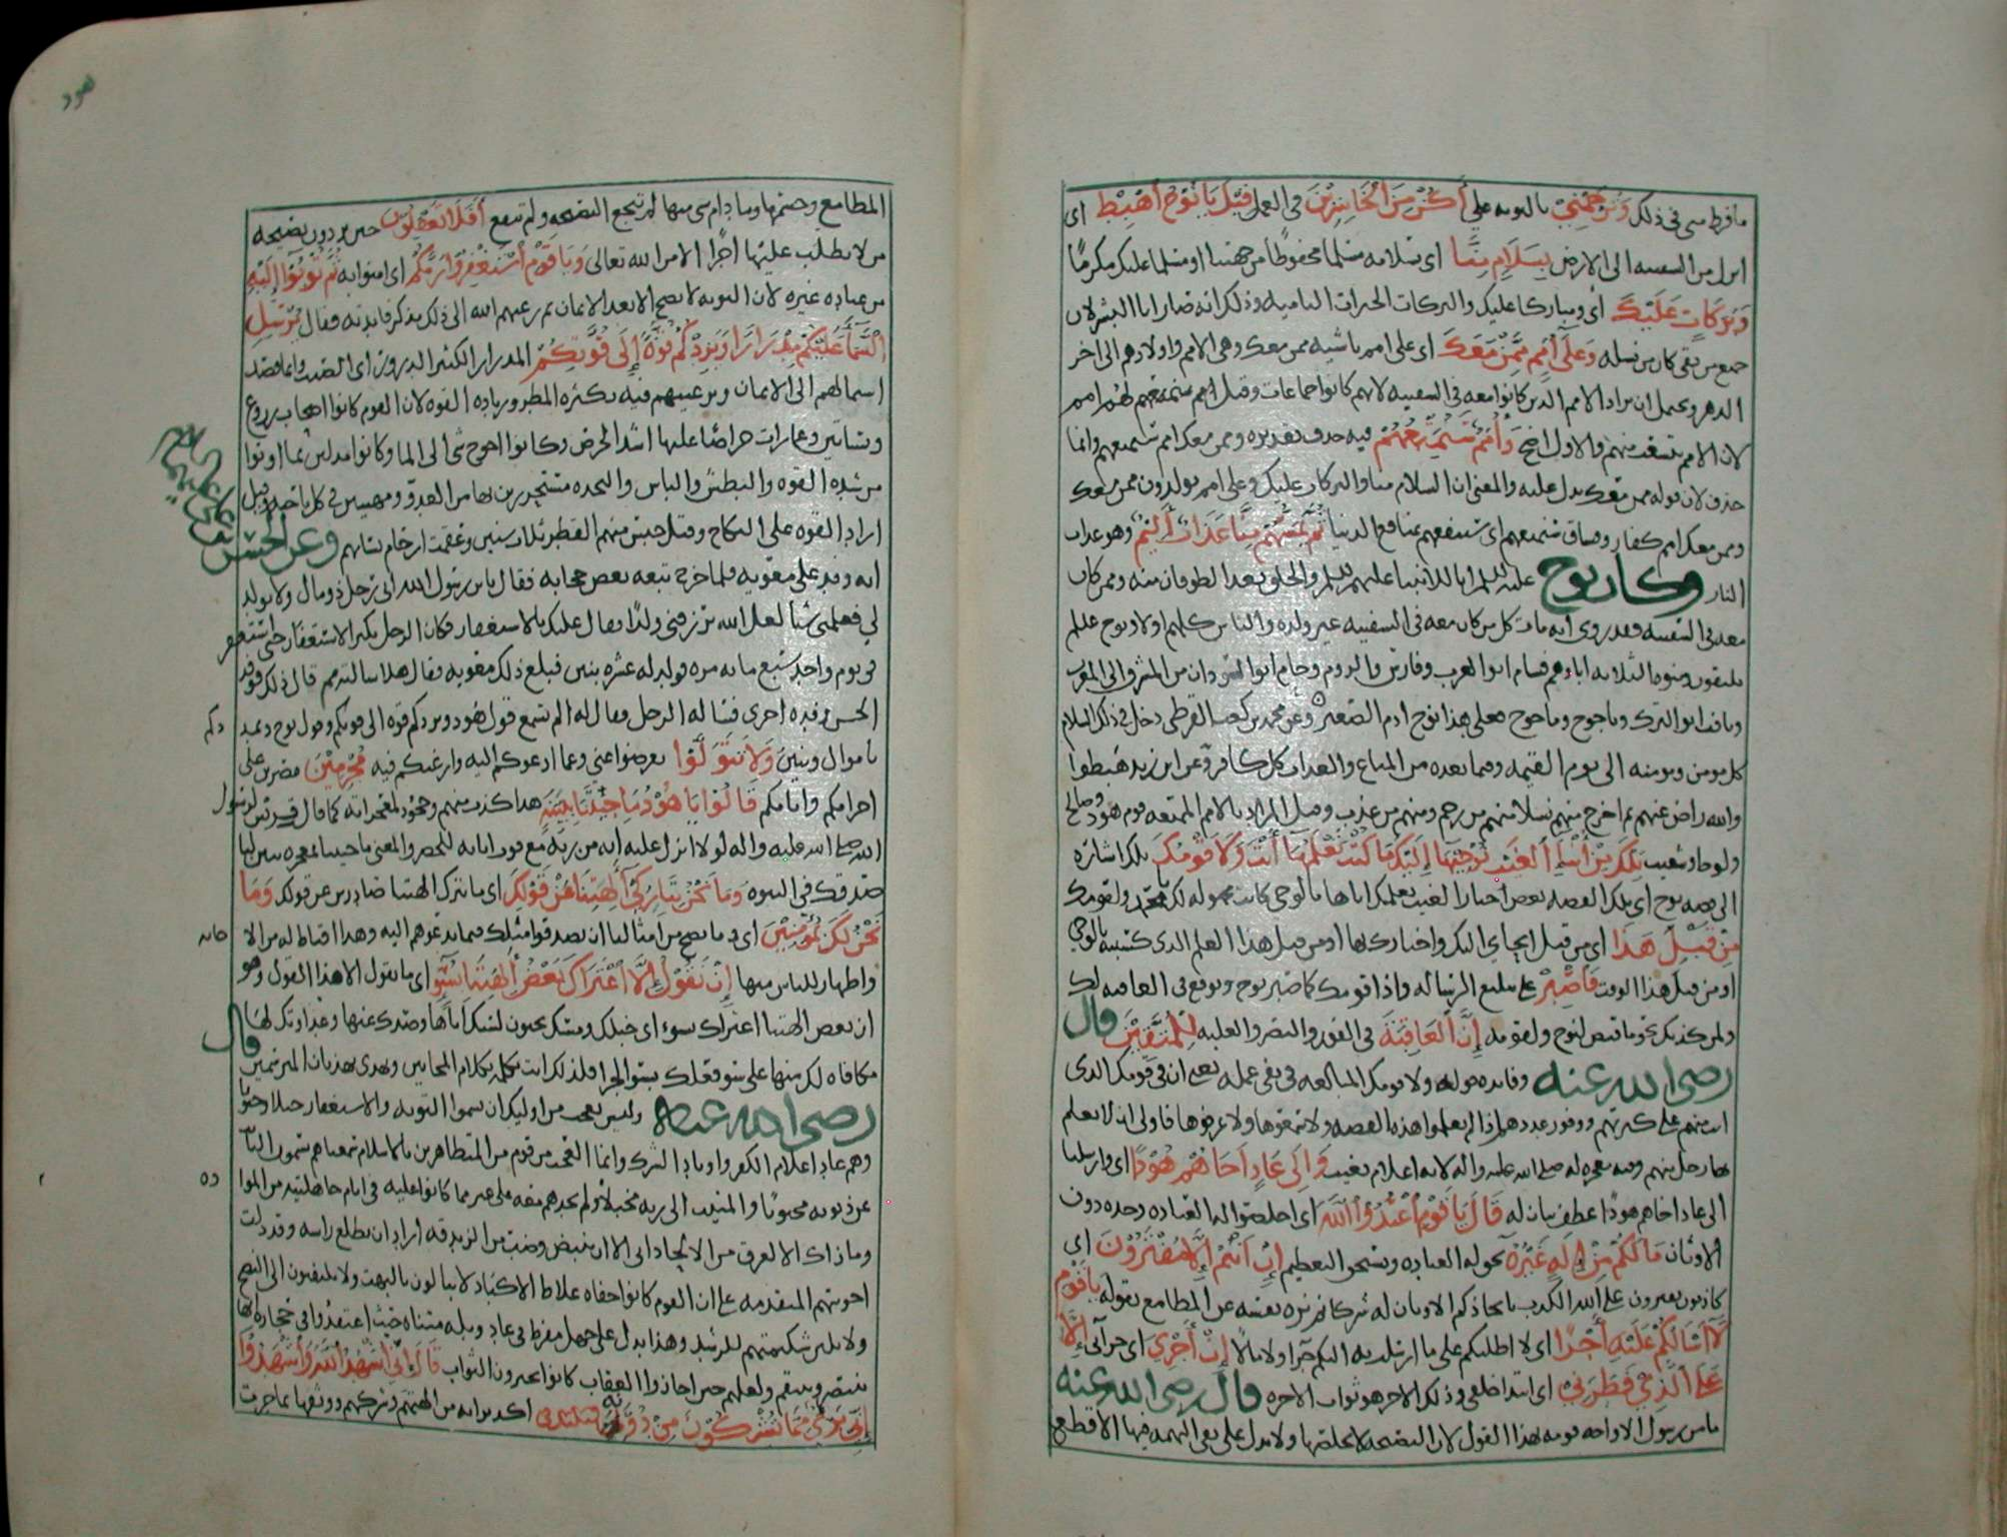 ما فرط مني في ذلك وَتَرْحَمْنِي بالتوبه علي أَكُنْ مِنَ الْخَاسِرِيْنَ في العمل قِيْلَ يَا نُوْحُ اهْبِطْ اي
انزل من السفينه الى الارض بِسَلَامٍ مِنَّا اي بسلامه مسلما محفوظا من جهتنا او مسلما عليك مكرمًا
وَبَرَكَاتٍ عَلَيْكَ اي ومباركا عليك والبركات الخيرات الناميه وذلك انه صار ابا البشر لان
جميع من بقي كان من نسله وَعَلَى أُمَمٍ مِمَّنْ مَعَكَ اي على امم ناشيه ممن معك وهي الامم واولادهم الى اخر
الدهر ويحتمل ان يراد الامم الذين كانوا معه في السفينه لانهم كانوا جماعات وقيل لهم امم
لان الامم تتشعب منهم والاول اوضح وَأُمَمٌ سَنُمَتِّعُهُمْ فيه حذف تقديره وممن معك امم سنمتعهم وانما
حذف لان قوله ممن معك يدل عليه والمعنى ان السلام منا والبركات عليك وعلى امم يولدون ممن معك
وممن معك امم كفار سنمتعهم اي سننفعهم بمنافع الدنيا ثُمَّ يَمَسُّهُمْ مِنَّا عَذَابٌ أَلِيْمٌ وهو عذاب
النار وكان نوح عليه السلم ابا للانبيا عليهم السلم والخلق بعد الطوفان منه وممن كان
معه في السفينه فقد روي انه مات كل من كان معه في السفينه غير ولده والناس كلهم اولاد نوح عليه السلم
وبنوه الثلاثه اباوهم فسام ابو العرب وفارس والروم وحام ابو السودان من المشرق الى المغرب
ويافث ابو الترك وياجوج وماجوج فعلى هذا نوح ادم الصغير وعن محمد بن كعب القرظي دخل في ذلك السلام
كل مومن ومومنه الى يوم القيمه وفيما بعده من المتاع والعذاب كل كافر وعن ابن زيد هبطوا
والله راض عنهم ثم اخرج منهم نسلا منهم من رحم ومنهم من عذب وقيل المراد بالامم الممتعه قوم هود وصالح
ولوط وشعيب تِلْكَ مِنْ أَنْبَاءِ الْغَيْبِ نُوْحِيْهَا إِلَيْكَ مَا كُنْتَ تَعْلَمُهَا أَنْتَ وَلَا قَوْمُكَ تلك اشاره
الى قصه نوح اي تلك القصه بعض اخبار الغيب نعلمك اياها بالوحي كانت مجهوله لك ولقومك
مِنْ قَبْلِ هَذَا اي من قبل ايحاي اليك واخبارك بها او من قبل هذا العلم الذي كسبته بالوحي
او من قبل هذا الوقت فَاصْبِرْ على تبليغ الرساله واذا قومك كما صبر نوح وتوقع في العاقبه لك
ولمن كذبك نحو ما قيض لنوح ولقومه إِنَّ الْعَاقِبَةَ في الفوز والنصر والغلبه لِلْمُتَّقِيْنَ قال
رضي الله عنه وفايده قوله ولا قومك المبالغه في نفي علمه يعني ان في قومك الذي
انت منهم على كثرتهم ووفور عددهم اذا لم يعلموا هذه القصه ولا سمعوها ولا عرفوها فاولى ان لا يعلم
بها رجل منهم وفيه معجزه له صلى الله عليه واله لانه اعلام بغيب وَإِلَى عَادٍ أَخَاهُمْ هُوْدًا اي وارسلنا
الى عاد اخاهم هودًا عطف بيان له قَالَ يَا قَوْمِ اعْبُدُوا اللَّهَ اي اخلصوا له العباده وحده دون
الاوثان مَا لَكُمْ مِنْ إِلَهٍ غَيْرُهُ تحق له العباده ويستحق التعظيم إِنْ أَنْتُمْ إِلَّا مُفْتَرُوْنَ اي
كاذبون مفترون على الله الكذب باتخاذكم الاوثان له شركا ثم نزه نفسه عن المطامع بقوله يَا قَوْمِ
لَا أَسْأَلُكُمْ عَلَيْهِ أَجْرًا اي لا اطلبكم على ما ارسلت به اليكم اجرا ولا مالا إِنْ أَجْرِيَ اي جزآئي إِلَّا
عَلَى الَّذِي فَطَرَنِي اي ابتدا خلقي وذلك الاجر هو ثواب الاخره قال رضي الله عنه
ما من رسول الا واجه قومه بهذا القول لان النصيحه لا يخلصها ولا يدل على نفي التهمه فيها الا قطع
هود
المطامع وحسمها وما دام شي منها لم تنجع النصيحه ولم تنفع أَفَلَا تَعْقِلُوْنَ حين تردون نصيحه
من لا يطلب عليها اجرًا الا من الله تعالى وَيَا قَوْمِ اسْتَغْفِرُوا رَبَّكُمْ اي امنوا به ثُمَّ تُوْبُوا إِلَيْهِ
من عباده غيره لان التوبه لا تصح الا بعد الايمان ثم رغبهم الله الى ذلك بذكر فايدته فقال يُرْسِلِ
السَّمَاءَ عَلَيْكُمْ مِدْرَارًا وَيَزِدْكُمْ قُوَّةً إِلَى قُوَّتِكُمْ المدرار الكثير الدرور اي الصب وانما قصد
استمالتهم الى الايمان وترغيبهم فيه بكثره المطر وزياده القوه لان القوم كانوا اصحاب زروع
وبساتين وعمارات حراصًا عليها اشد الحرص وكانوا احوج شي الى الما وكانوا مدلين بما اوتوا
من شده القوه والبطش والباس والنجده مستحرزين بها من العدو ومهيبين في كل ناحيه وقيل
اراد القوه على النكاح وقيل حبس عنهم القطر ثلاث سنين وعقمت ارحام نسائهم وعن الحسن
بن علي عليهم السلام
انه وفد على معويه فلما خرج تبعه بعض حجابه فقال يابن رسول الله اني رجل ذو مال ولا يولد
لي فعلمني شيئا لعل الله يرزقني ولدًا فقال عليك بالاستغفار فكان الرجل يكثر الاستغفار حتى استغفر
في يوم واحد سبع مايه مره فولد له عشره بنين فبلغ ذلك معويه فقال هلا سالته مم قال ذلك فوفد
الحسن وفده اخرى فساله الرجل فقال له الم تسمع قول هود ويزدكم قوه الى قوتكم وقول نوح ويمددكم
باموال وبنين وَلَا تَتَوَلَّوْا تعرضوا عني وعما ادعوكم اليه وارغبكم فيه مُجْرِمِيْنَ مصرين على
اجرامكم واثامكم قَالُوا يَا هُوْدُ مَا جِئْتَنَا بِبَيِّنَةٍ هذا كذب منهم وجحود لمعجزاته كما قال قريش لرسول
الله صلى الله عليه واله لولا انزل عليه ايه من ربه مع فوت اياته للحصر والمعنى ما جيتنا بمعجزه تبين لنا
صدقك في النبوه وَمَا نَحْنُ بِتَارِكِي آلِهَتِنَا عَنْ قَوْلِكَ اي ما نترك الهتنا صادرين عن قولك وَمَا
نَحْنُ لَكَ بِمُؤْمِنِيْنَ اي وما يصح من امثالنا ان يصدقوا مثلك فيما يدعوهم اليه وهذا اقناط له من الاجابه
واظهار للناس منها إِنْ نَقُوْلُ إِلَّا اعْتَرَاكَ بَعْضُ آلِهَتِنَا بِسُوءٍ اي ما نقول الا هذا القول وهو
ان بعض الهتنا اعتراك بسوء اي خبلك ومسك بجنون لسبك اياها وصدك عنها وعداوتك لها
مكافاه لك منها على سو فعلك بسو الجزا فلذلك انت تكلم بكلام المجانين وتهذي بهذيان المبرسمين قال
رضي الله عنه وليس بعجب من اوليك ان يسموا التوبه والاستغفار خبلا وجنونا
وهم عاد اعلام الكفر واوتاد الشرك وانما العجب من قوم من المتظاهرين بالاسلام سمعناهم يسمون التايب
عن ذنوبه مجنونًا والمنيب الى ربه مخبلا ولم نجدهم معه على عشر مما كانوا عليه في ايام جاهليته من المواده
وما ذاك الا لعرق من الالحاد ابى الا ان ينبض وضب من الزندقه اراد ان يطلع راسه وقد دلت
اجوبتهم المتقدمه على ان القوم كانوا جفاه غلاظ الاكباد لا يبالون بالبهت ولا يلتفتون الى النصح
ولا تلين شكيمتهم للرشد وهذا يدل على جهل مفرط في عاد وبله متناه حيث اعتقدوا في حجاره انها
تنتصر وتنتقم ولعلهم حين اجازوا العقاب كانوا يجيزون الثواب قَالَ إِنِّي أُشْهِدُ اللَّهَ وَاشْهَدُوا
إِنِّي بَرِيءٌ مِمَّا تُشْرِكُوْنَ مِنْ دُوْنِهِ اكد براته من الهتهم وشركهم ووثقها بما جرت